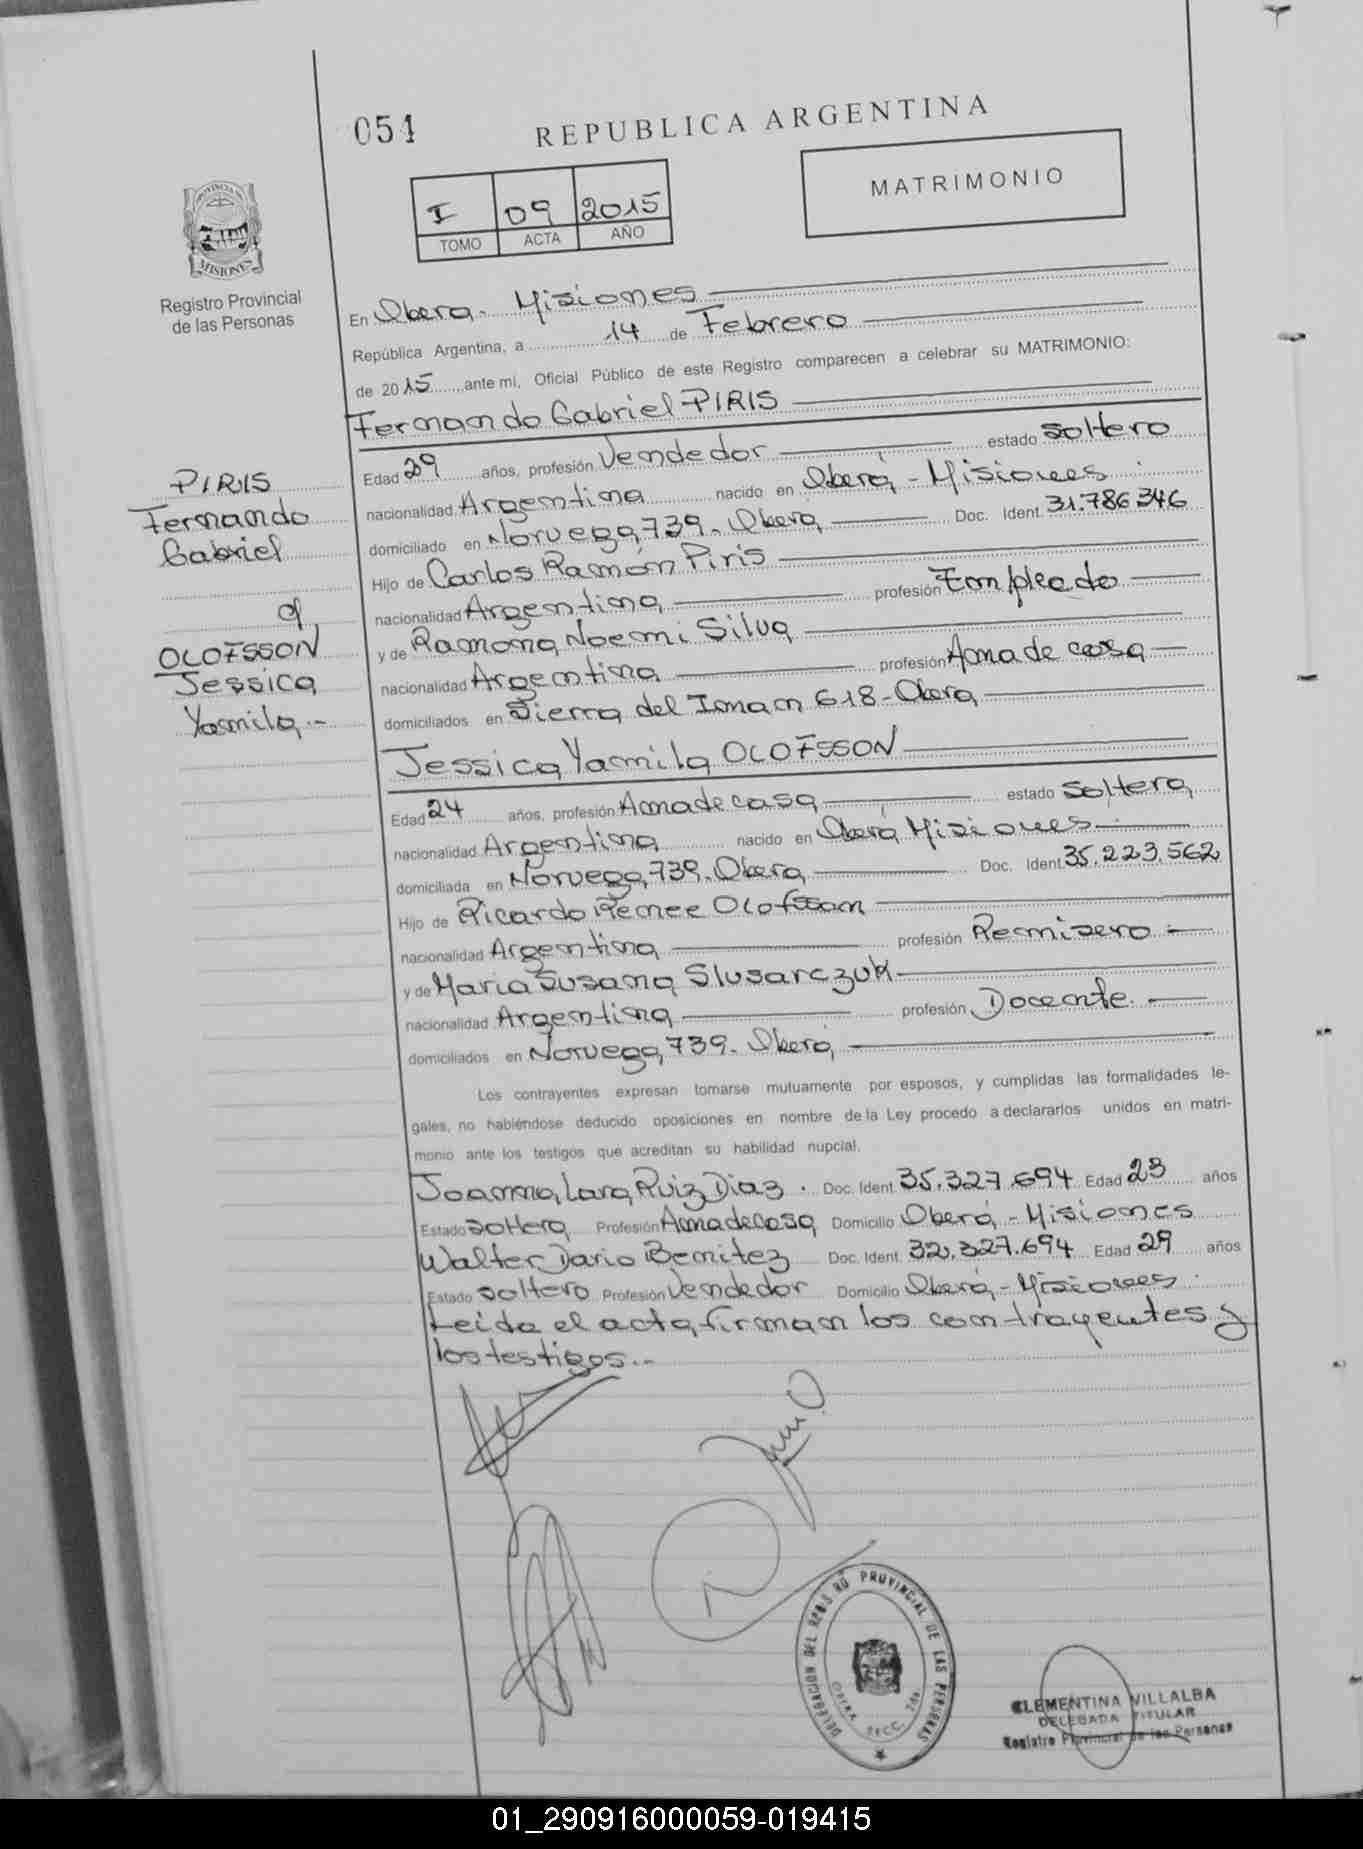 054
REPUBLICA ARGENTINA
I 09 2015
TOMO ACTA AÑO
MATRIMONIO
PROVINCIA DE
MISIONES
Registro Provincial
de las Personas
En Obera. Misiones
República Argentina, a 14 de Febrero
de 2015 ante mí, Oficial Público de este Registro comparecen a celebrar su MATRIMONIO:
Fernando Gabriel PIRIS
PIRIS
Fernando
Gabriel
OLOFSSON
Jessica
Yasmila.-
Edad 29 años, profesión Vendedor estado soltero
nacionalidad Argentina nacido en Oberá - Misiones
domiciliado en Noruega 739. Oberá Doc. Ident. 31.786346
Hijo de Carlos Ramón Piris
nacionalidad Argentina profesión Empleado
y de Ramona Noemi Silva
nacionalidad Argentina profesión Ama de casa
domiciliados en Sierra del Iman 618-Obera
Jessica Yamila OLOFSSON
Edad 24 años, profesión Ama de casa estado soltera
nacionalidad Argentina nacido en Oberá Misiones
domiciliada en Noruega 739. Obera Doc. Ident. 35.223.562
Hijo de Ricardo Renee Olofsson
nacionalidad Argentina profesión Remisero
y de Maria Susana Slusarczuk
nacionalidad Argentina profesión Docente.
domiciliados en Noruega 739. Oberá
Los contrayentes expresan tomarse mutuamente por esposos, y cumplidas las formalidades le-
gales, no habiéndose deducido oposiciones en nombre de la Ley procedo a declararlos unidos en matri-
monio ante los testigos que acreditan su habilidad nupcial.
Joanna Lara Ruiz Diaz. Doc. Ident. 35.327.694 Edad 23 años
Estado soltera Profesión Ama de casa Domicilio Oberá - Misiones
Walter Dario Benitez Doc. Ident. 32.327.694 Edad 29 años
Estado soltero Profesión Vendedor Domicilio Oberá - Misiones.
Leida el acta, firman los contrayentes y
los testigos.-
DELEGACION DEL REGISTRO PROVINCIAL DE LAS PERSONAS
CLEMENTINA VILLALBA
DELEGADA TITULAR
Registro Provincial de las Personas
01_290916000059-019415